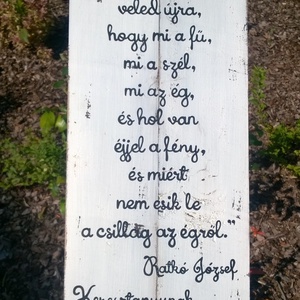 veled újra,
hogy mi a fű,
mi a szél,
mi az ég,
és hol van
éjjel a fény,
és miért
nem esik le
a csillag az égről.”
Ratkó József